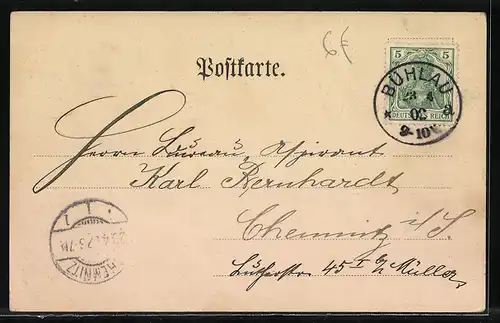 6f
Postkarte.
5 5
DEUTSCHES REICH
BÜHLAU
23 4
02
9-10V.
* a
Herrn Bureau-Aspirant
Karl Bernhardt
Chemnitz i/S.
Lutherstr. 45 I b/ Müller
CHEMNITZ